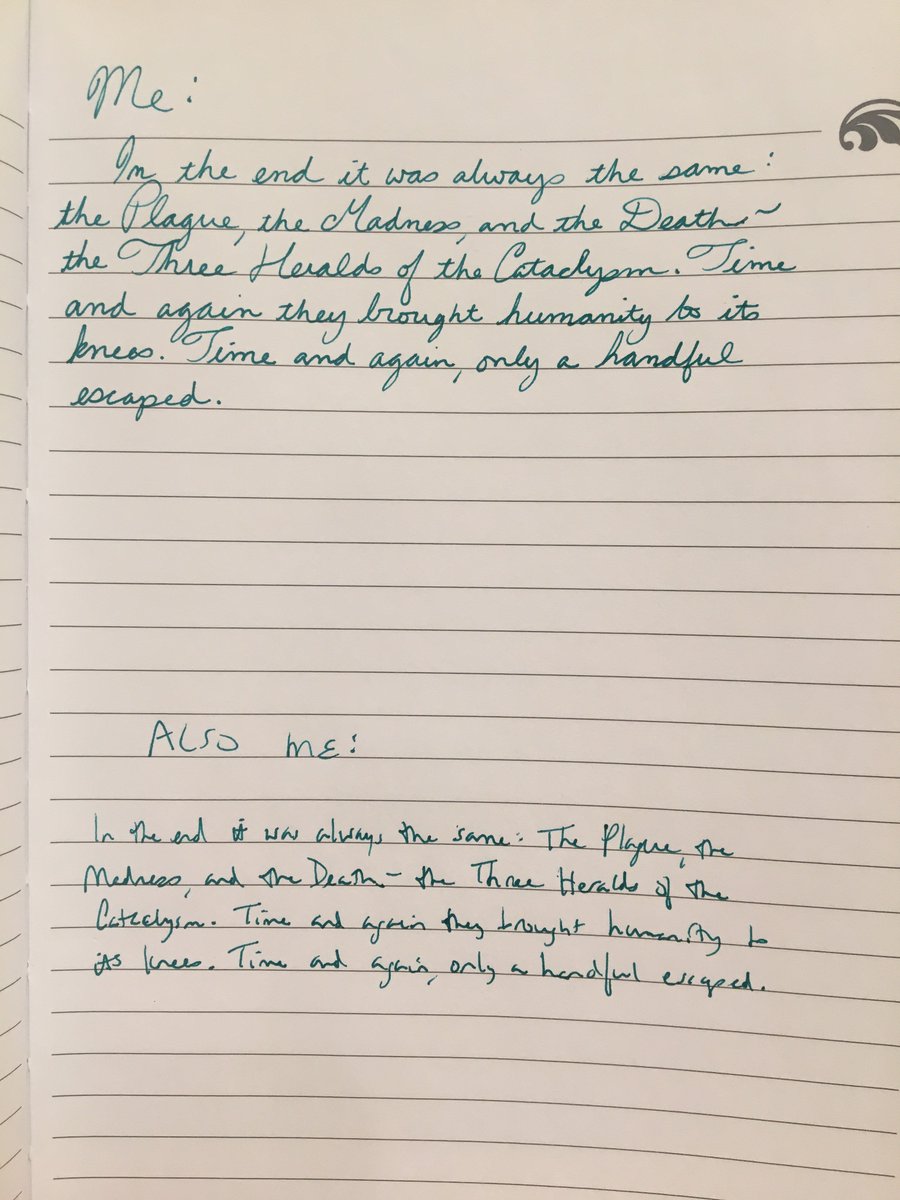 Me:
In the end it was always the same:
the Plague, the Madness, and the Death~
the Three Heralds of the Cataclysm. Time
and again they brought humanity to its
knees. Time and again, only a handful
escaped.
ALSO ME:
In the end it was always the same: The Plague, the
Madness, and the Death- the Three Heralds of the
Cataclysm. Time and again they brought humanity to
its knees. Time and again, only a handful escaped.